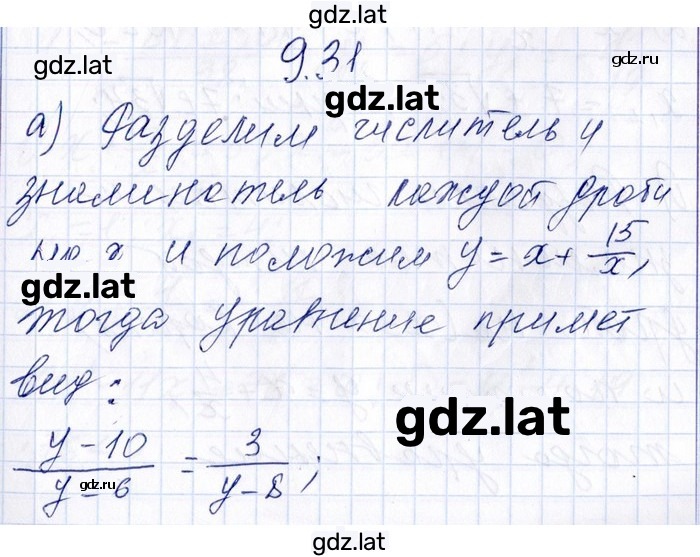 gdz.lat
9.31
gdz.lat
gdz.ru
gdz.lat
а) Разделим числитель и
знаминатель каждой дроби
на x и положим y = x + 15/x,
gdz.lat
тогда уравнение примет
вид:
gdz.lat
(y - 10)/(y - 6) = 3/(y - 8);
gdz.ru
gdz.lat